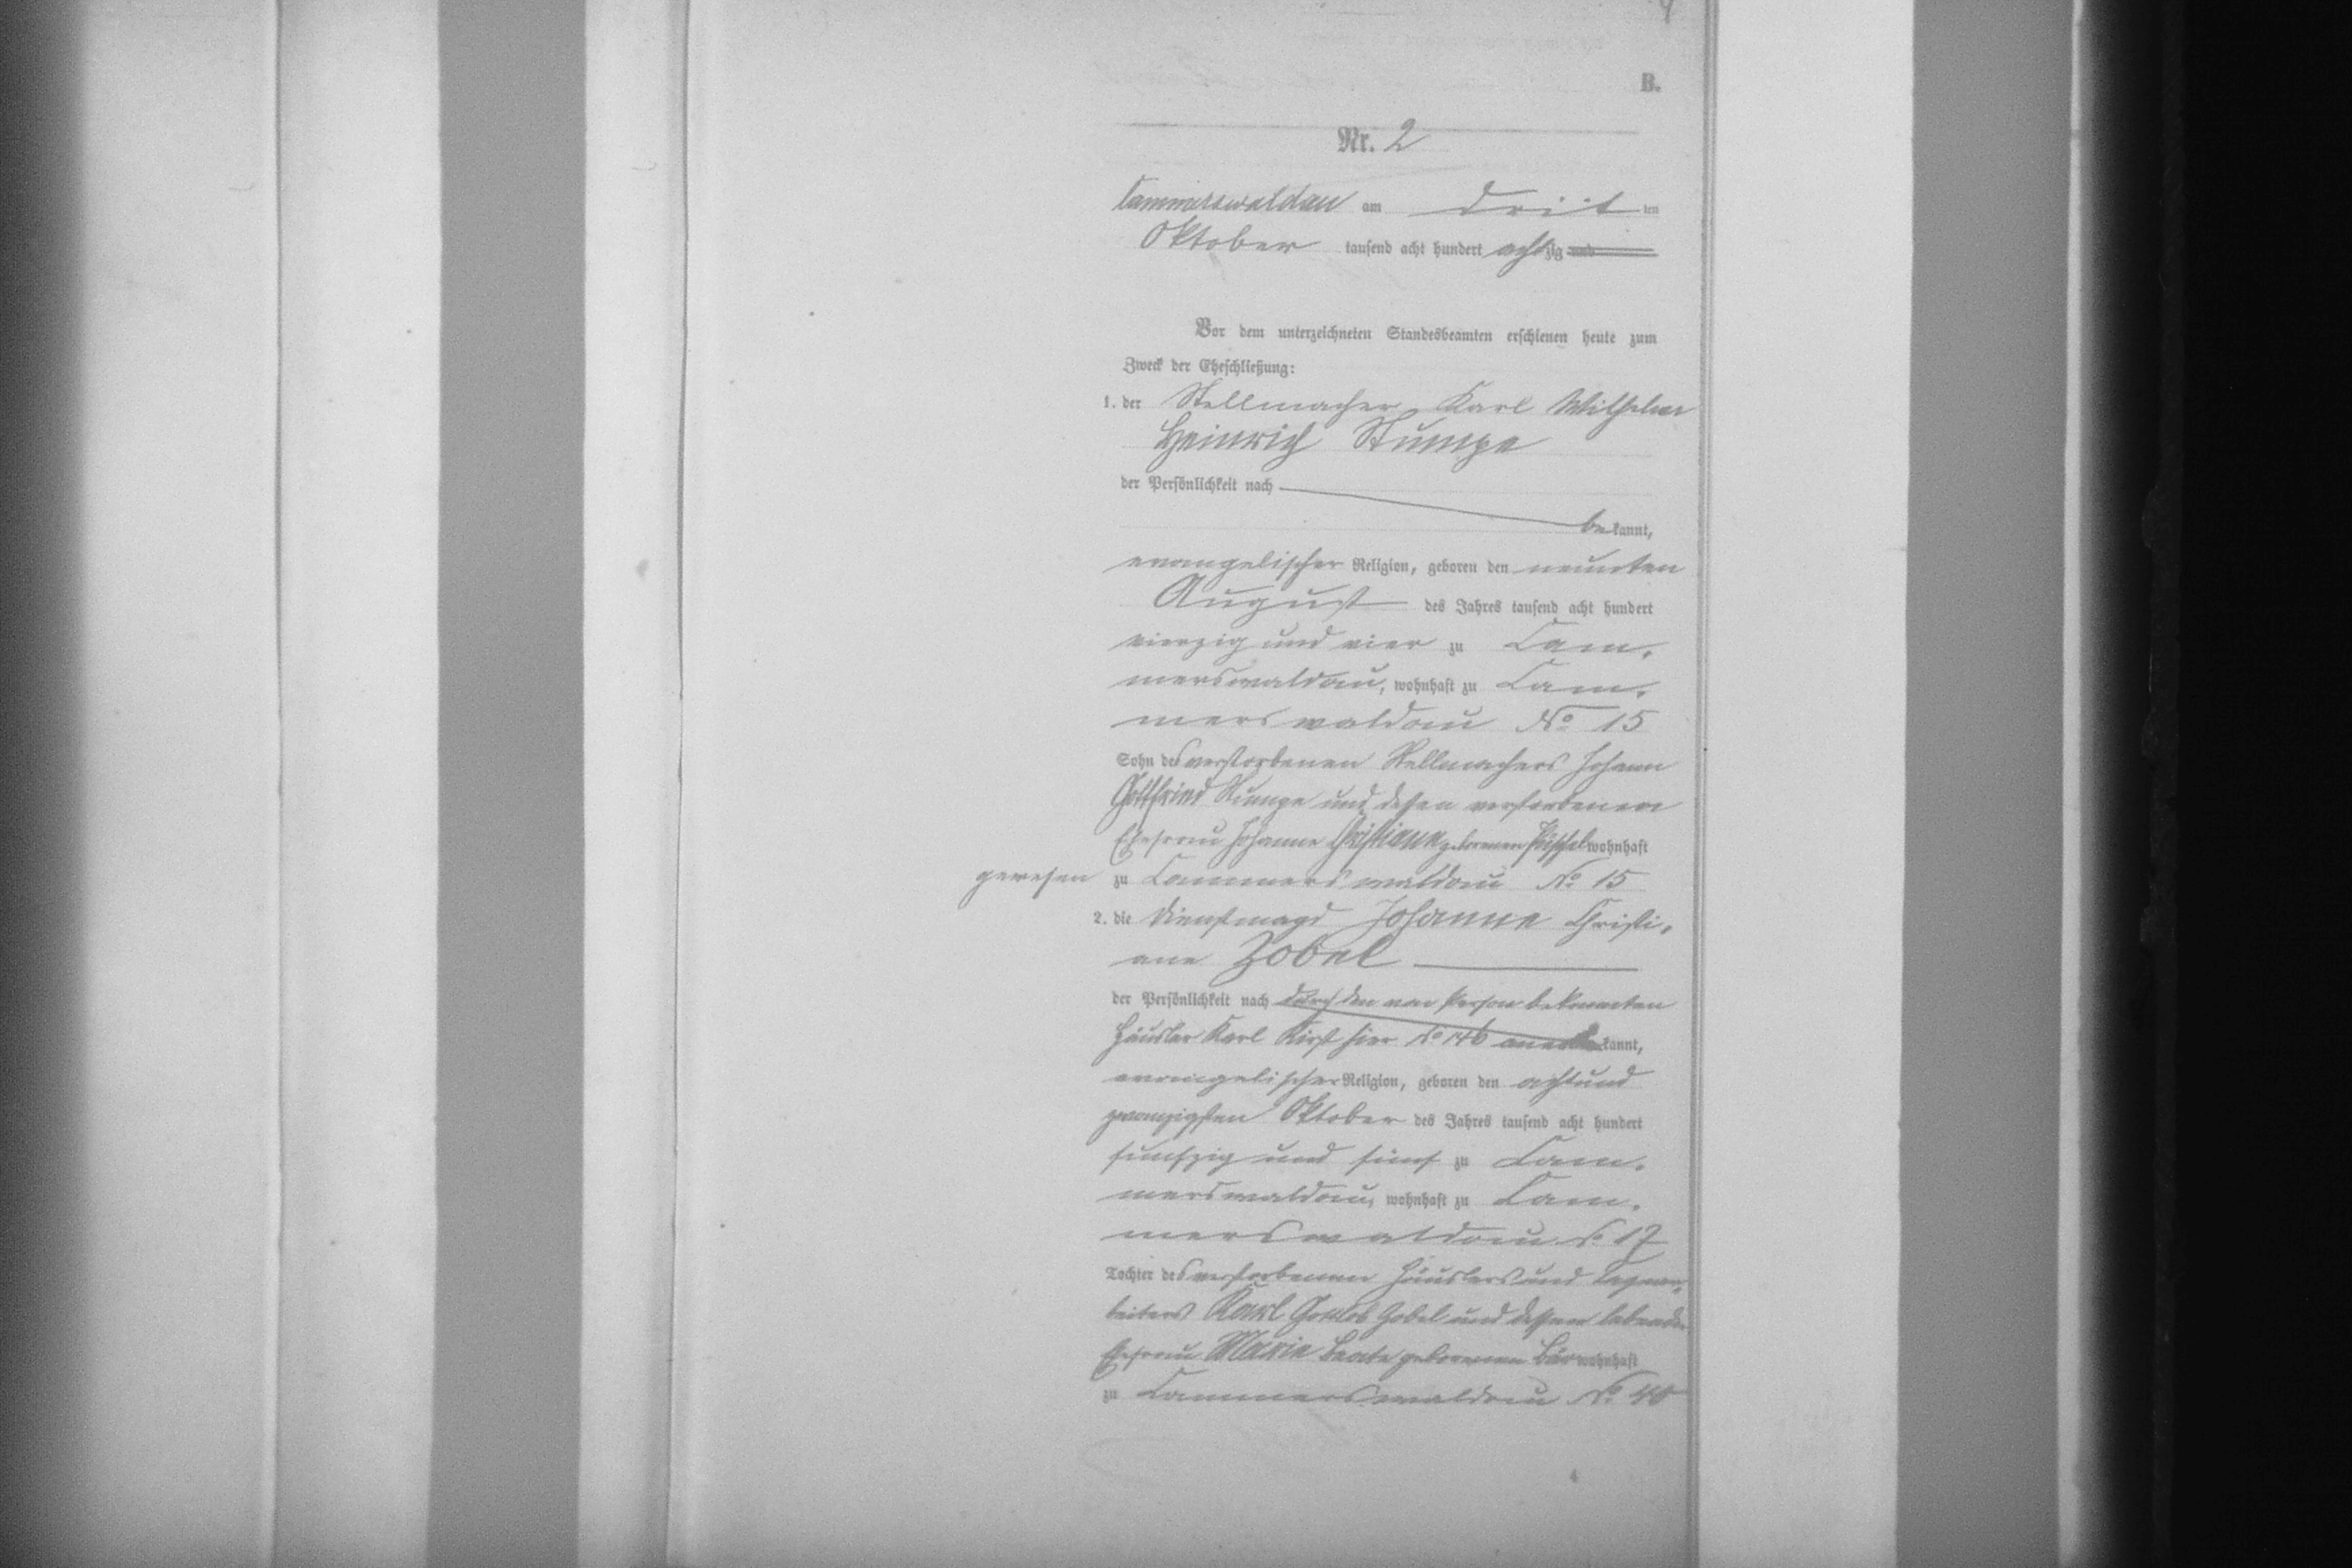 B.
Nr. 2
Cammerswaldau am dritten
Oktober tausend acht hundert achtzig und
Vor dem unterzeichneten Standesbeamten erschienen heute zum
Zweck der Eheschließung:
1. der Stellmacher Karl Wilhelm
Heinrich Stumpe
der Persönlichkeit nach
bekannt,
evangelischer Religion, geboren den neunten
August des Jahres tausend acht hundert
vierzig und vier zu Cam,
merswaldau, wohnhaft zu Cam,
merswaldau No 15
Sohn des verstorbenen Stellmachers Johann
Gottfried Stumpe und dessen verstorbenen
Ehefrau Johanne Christiane geborenen wohnhaft
gewesen zu Cammerswaldau No 15
2. die Dienstmagd Johanne Christi,
ane Zobel
der Persönlichkeit nach durch den von Person bekannten
Häusler Karl Kirst hier No 146 anerkannt,
evangelischer Religion, geboren den achtund
zwanzigsten Oktober des Jahres tausend acht hundert
funfzig und fünf zu Cam,
merswaldau, wohnhaft zu Cam,
merswaldau No 17
Tochter des verstorbenen Häuslers und Tagear,
beiters Karl Gottlob Zobel und dessen lebenden
Ehefrau Marie Beate geborenen Bär wohnhaft
zu Cammerswaldau No 40
4